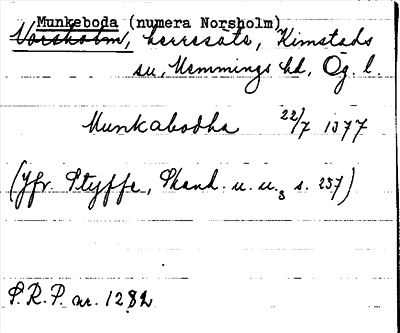 Munkeboda (numera Norsholm)
Norsholm, herresäte, Kimstads
sn, Memmings hd, Ög. l.
Munkabodha 22/7 1377
(Jfr. Styffe, Skand. u. u. s. 257)
S. R. P. nr. 1282